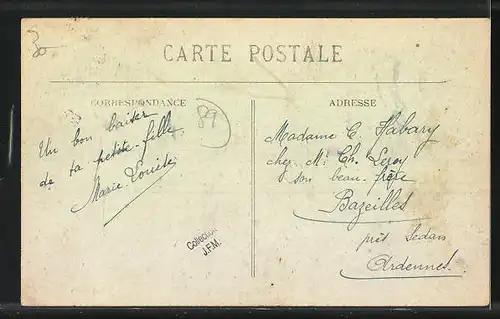 30
CARTE POSTALE
CORRESPONDANCE
ADRESSE
89
Un bon baiser
de ta petite-fille
Marie-Louise
Collection
J.F.M.
Madame C. Habary
chez Mr Ch. Leroy
son beau-frère
Bazeilles
près Sedan
Ardennes.